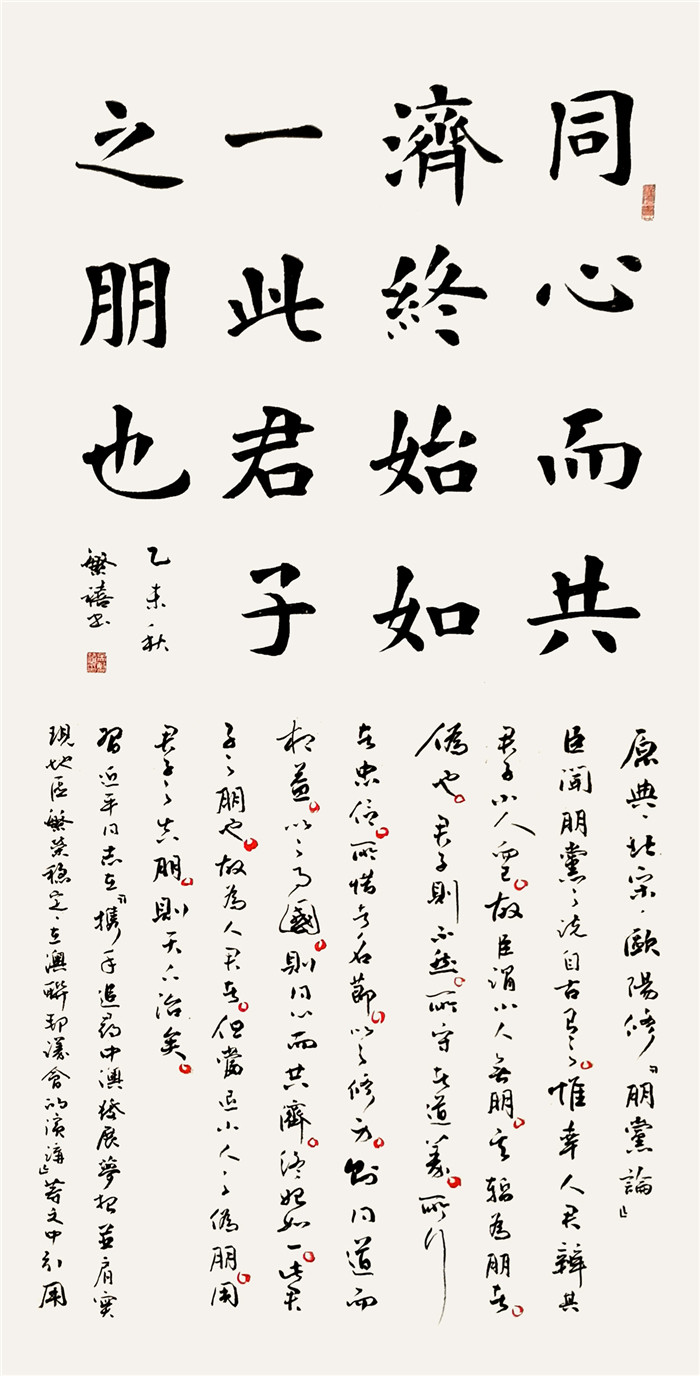 同心而共
濟終始如
一此君子
之朋也
乙未秋
繁禧书
原典·北宋·歐陽修『朋黨論』
臣聞朋黨之说自古有之。惟幸人君辨其
君子小人而已。故臣谓小人無朋。其暂為朋者。
偽也。君子則不然。所守者道義。所行
者忠信。所惜者名節。以之修身。則同道而
相益。以之事國。則同心而共濟。终始如一。此君
子之朋也。故為人君者。但當退小人之偽朋。用
君子之真朋。則天下治矣。
習近平同志在『攜手追尋中澳發展夢想並肩實
現地區繁荣稳定·在澳聯邦議會的演講』等文中引用